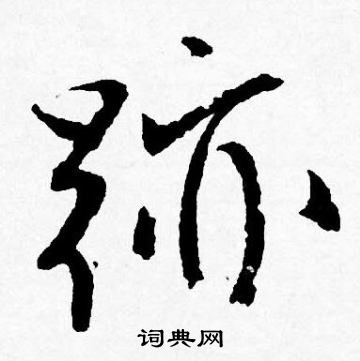 跡
词典网